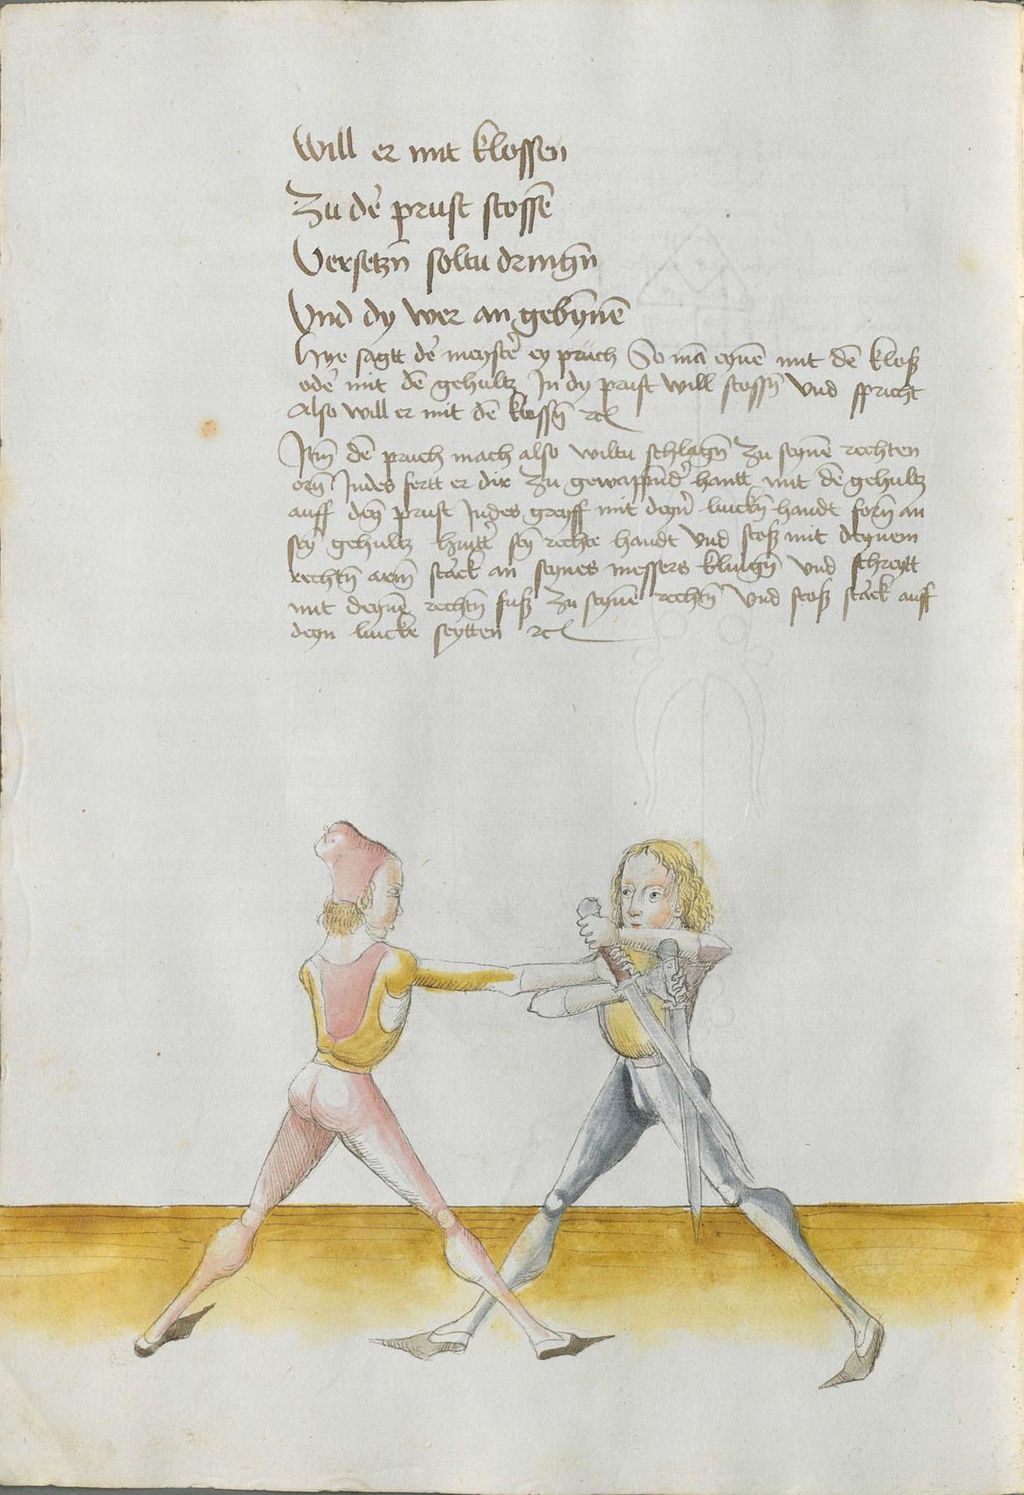 Will er mit klossen
Zu de᷑ prust stossē
Versetzn̄ soltu dringn̄
Vnd dy wer an gebÿnē
Hye sagtt de᷑ meyste᷑ ey prüch So mā eynē mit dē kloß
ode᷑ mit dē gehultz In dy prust will stossn̄ vnd spricht
Also will er mit dē klossn̄ ⁊c
Itm̄ dē pruch mach also wiltu schlagn̄ zu seynē rechten
orn̄ Indes fertt er dir zu gewappend᷑ hantt mit dē gehultz
auff deÿ prust Indes greyff mit deyn᷑ linckn̄ handt forn̄ an
seÿ gehultz hintt᷑ seÿ rechte handt vnd stoß mit deynem
rechtn̄ arm̄ starck an seynes messers klingn̄ vnd schreytt
mit deynē rechtn̄ fuß zu seynē rechtn̄ vnd stoß starck auff
deyn lincke seytten ⁊c